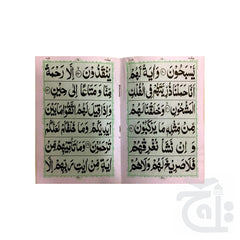 يَسْبَحُوْنَ ۝ وَاٰيَةٌ لَّهُمْ
اَنَّا حَمَلْنَا ذُرِّيَّتَهُمْ فِى الْفُلْكِ
الْمَشْحُوْنِ ۝ وَخَلَقْنَا لَهُمْ
مِّنْ مِّثْلِهٖ مَا يَرْكَبُوْنَ ۝
وَ اِنْ نَّشَاْ نُغْرِقْهُمْ
فَلَا صَرِيْخَ لَهُمْ وَلَا هُمْ
يُنْقَذُوْنَ ۝ اِلَّا رَحْمَةً
مِّنَّا وَمَتَاعًا اِلٰى حِيْنٍ ۝
وَاِذَا قِيْلَ لَهُمُ اتَّقُوْا مَا بَيْنَ
اَيْدِيْكُمْ وَمَا خَلْفَكُمْ لَعَلَّكُمْ
تُرْحَمُوْنَ ۝ وَمَا تَاْتِيْهِمْ مِّنْ
اٰيَةٍ مِّنْ اٰيٰتِ رَبِّهِمْ اِلَّا